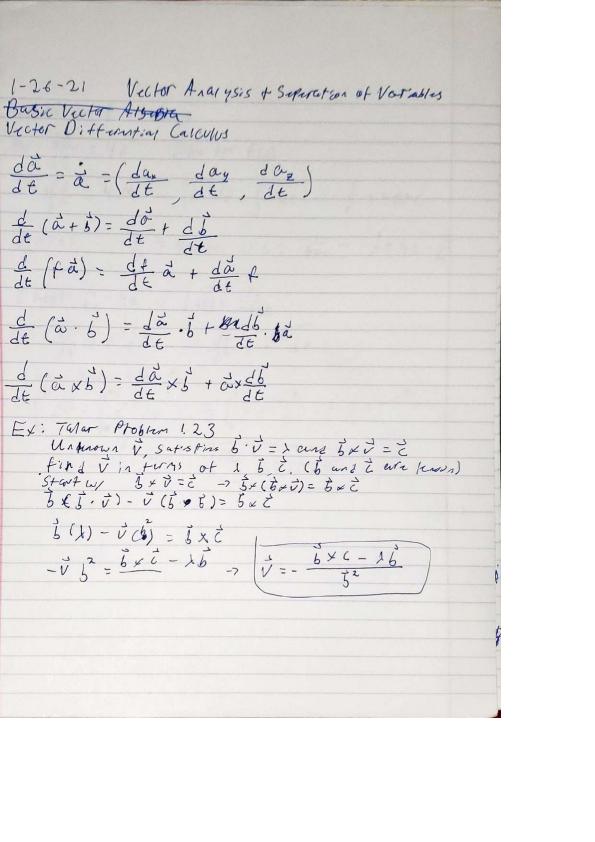 1-26-21 Vector Analysis + Seperation of Variables
Basic Vector Algebra
Vector Differential Calculus
da⃗/dt = a⃗̇ = (daₓ/dt, da_y/dt, da_z/dt)
d/dt (a⃗ + b⃗) = da⃗/dt + db⃗/dt
d/dt (f a⃗) = df/dt a⃗ + da⃗/dt f
d/dt (a⃗ · b⃗) = da⃗/dt · b⃗ + db⃗/dt · a⃗
d/dt (a⃗ × b⃗) = da⃗/dt × b⃗ + a⃗ × db⃗/dt
Ex: Talor Problem 1.23
Unknown v⃗, satisfies b⃗ · v⃗ = λ and b⃗ × v⃗ = c⃗
find v⃗ in terms of λ b⃗, c⃗. (b⃗ and c⃗ are known)
Start w/ b⃗ × v⃗ = c⃗ → b⃗ × (b⃗ × v⃗) = b⃗ × c⃗
b⃗ (b⃗ · v⃗) - v⃗ (b⃗ · b⃗) = b⃗ × c⃗
b⃗ (λ) - v⃗ (b²) = b⃗ × c⃗
-v⃗ b² = b⃗ × c⃗ - λb⃗ → v⃗ = - (b⃗ × c - λb⃗)/b⃗²